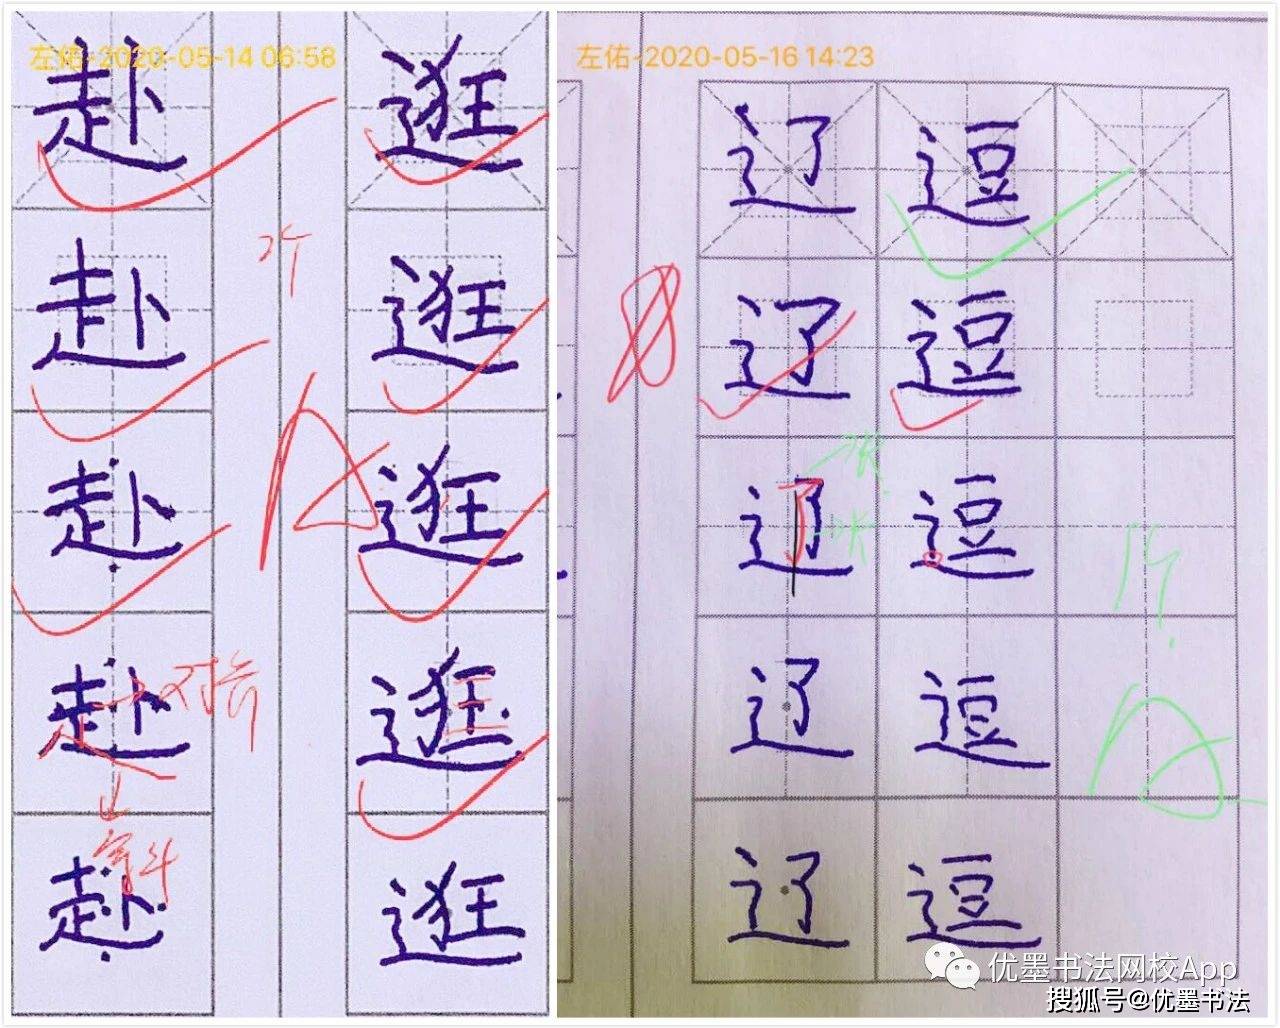 左佑-2020-05-14 06:58
赴 逛
赴 逛
赴 逛
赴 逛
对齐
赴 逛
左佑-2020-05-16 14:23
辽 逗
辽 逗
辽 逗
辽 逗
辽 逗
优墨书法网校App
搜狐号@优墨书法